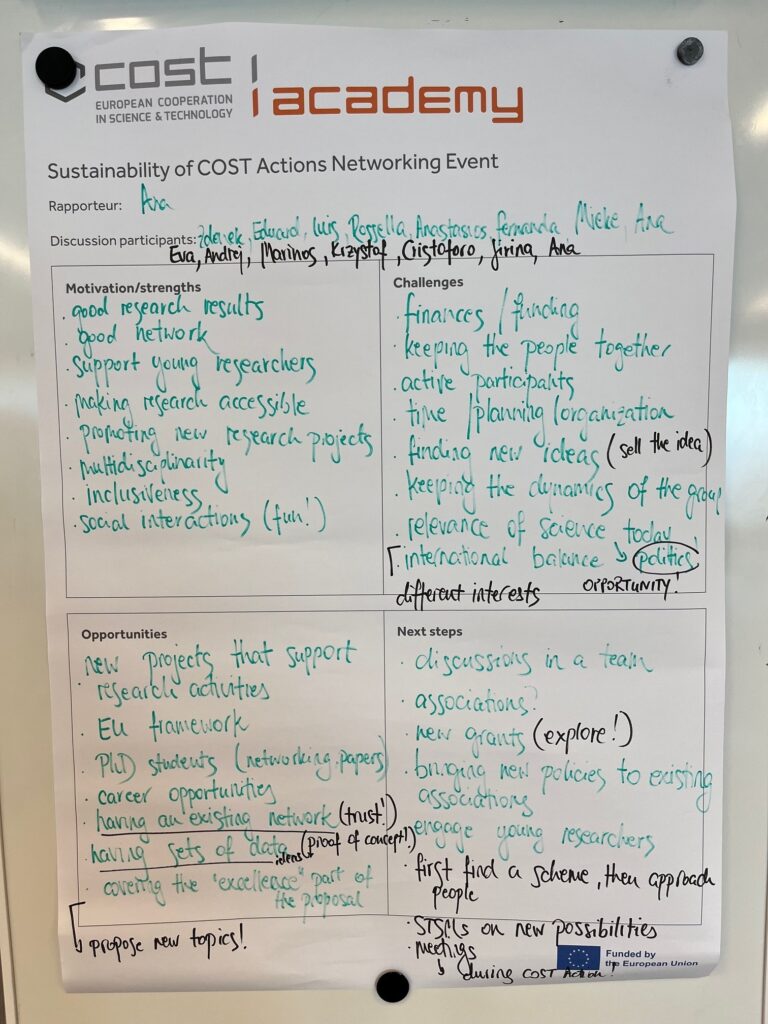 cost
EUROPEAN COOPERATION
IN SCIENCE & TECHNOLOGY
academy
Sustainability of COST Actions Networking Event
Rapporteur: Ana
Discussion participants: Zdenek, Eduard, Luis, Rossella, Anastasios, Fernanda Mieke, Ana
Eva, Andrej, Marinos, Krzystof, Cristoforo, Jirina, Ana
Motivation/strengths
· good research results
· good network
· support young researchers
· making research accessible
· promoting new research projects
· multidisciplinarity
· inclusiveness
· social interactions (fun!)
Challenges
· finances / funding
· keeping the people together
· active participants
· time / planning / organization
· finding new ideas (sell the idea)
· keeping the dynamics of the group
· relevance of science today
· international balance ↳ politics
different interests OPPORTUNITY!
Opportunities
new projects that support
· research activities
· EU framework
· PhD students (networking, papers)
· career opportunities
· having an existing network (trust!)
· having sets of data (proof of concept!)
ideas
· covering the "excellence" part of
the proposal
↳ propose new topics!
Next steps
· discussions in a team
· associations?
· new grants (explore!)
· bringing new policies to existing
associations
· engage young researchers
· first find a scheme, then approach
people
· STSMs on new possibilities
· meetings
↳ during COST Action!
Funded by
the European Union